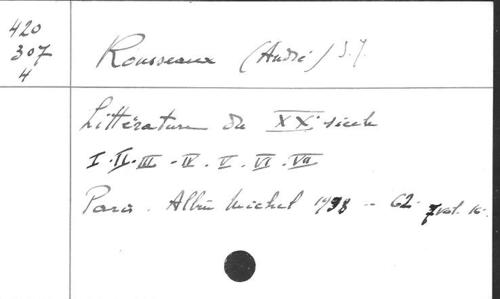 420
307
4
Rousseaux (André) S.J.
Littérature du XXe siècle
I. II. III - IV. V. VI. VII
Paris. Albin Michel 1938 - 62 7 vol. in-